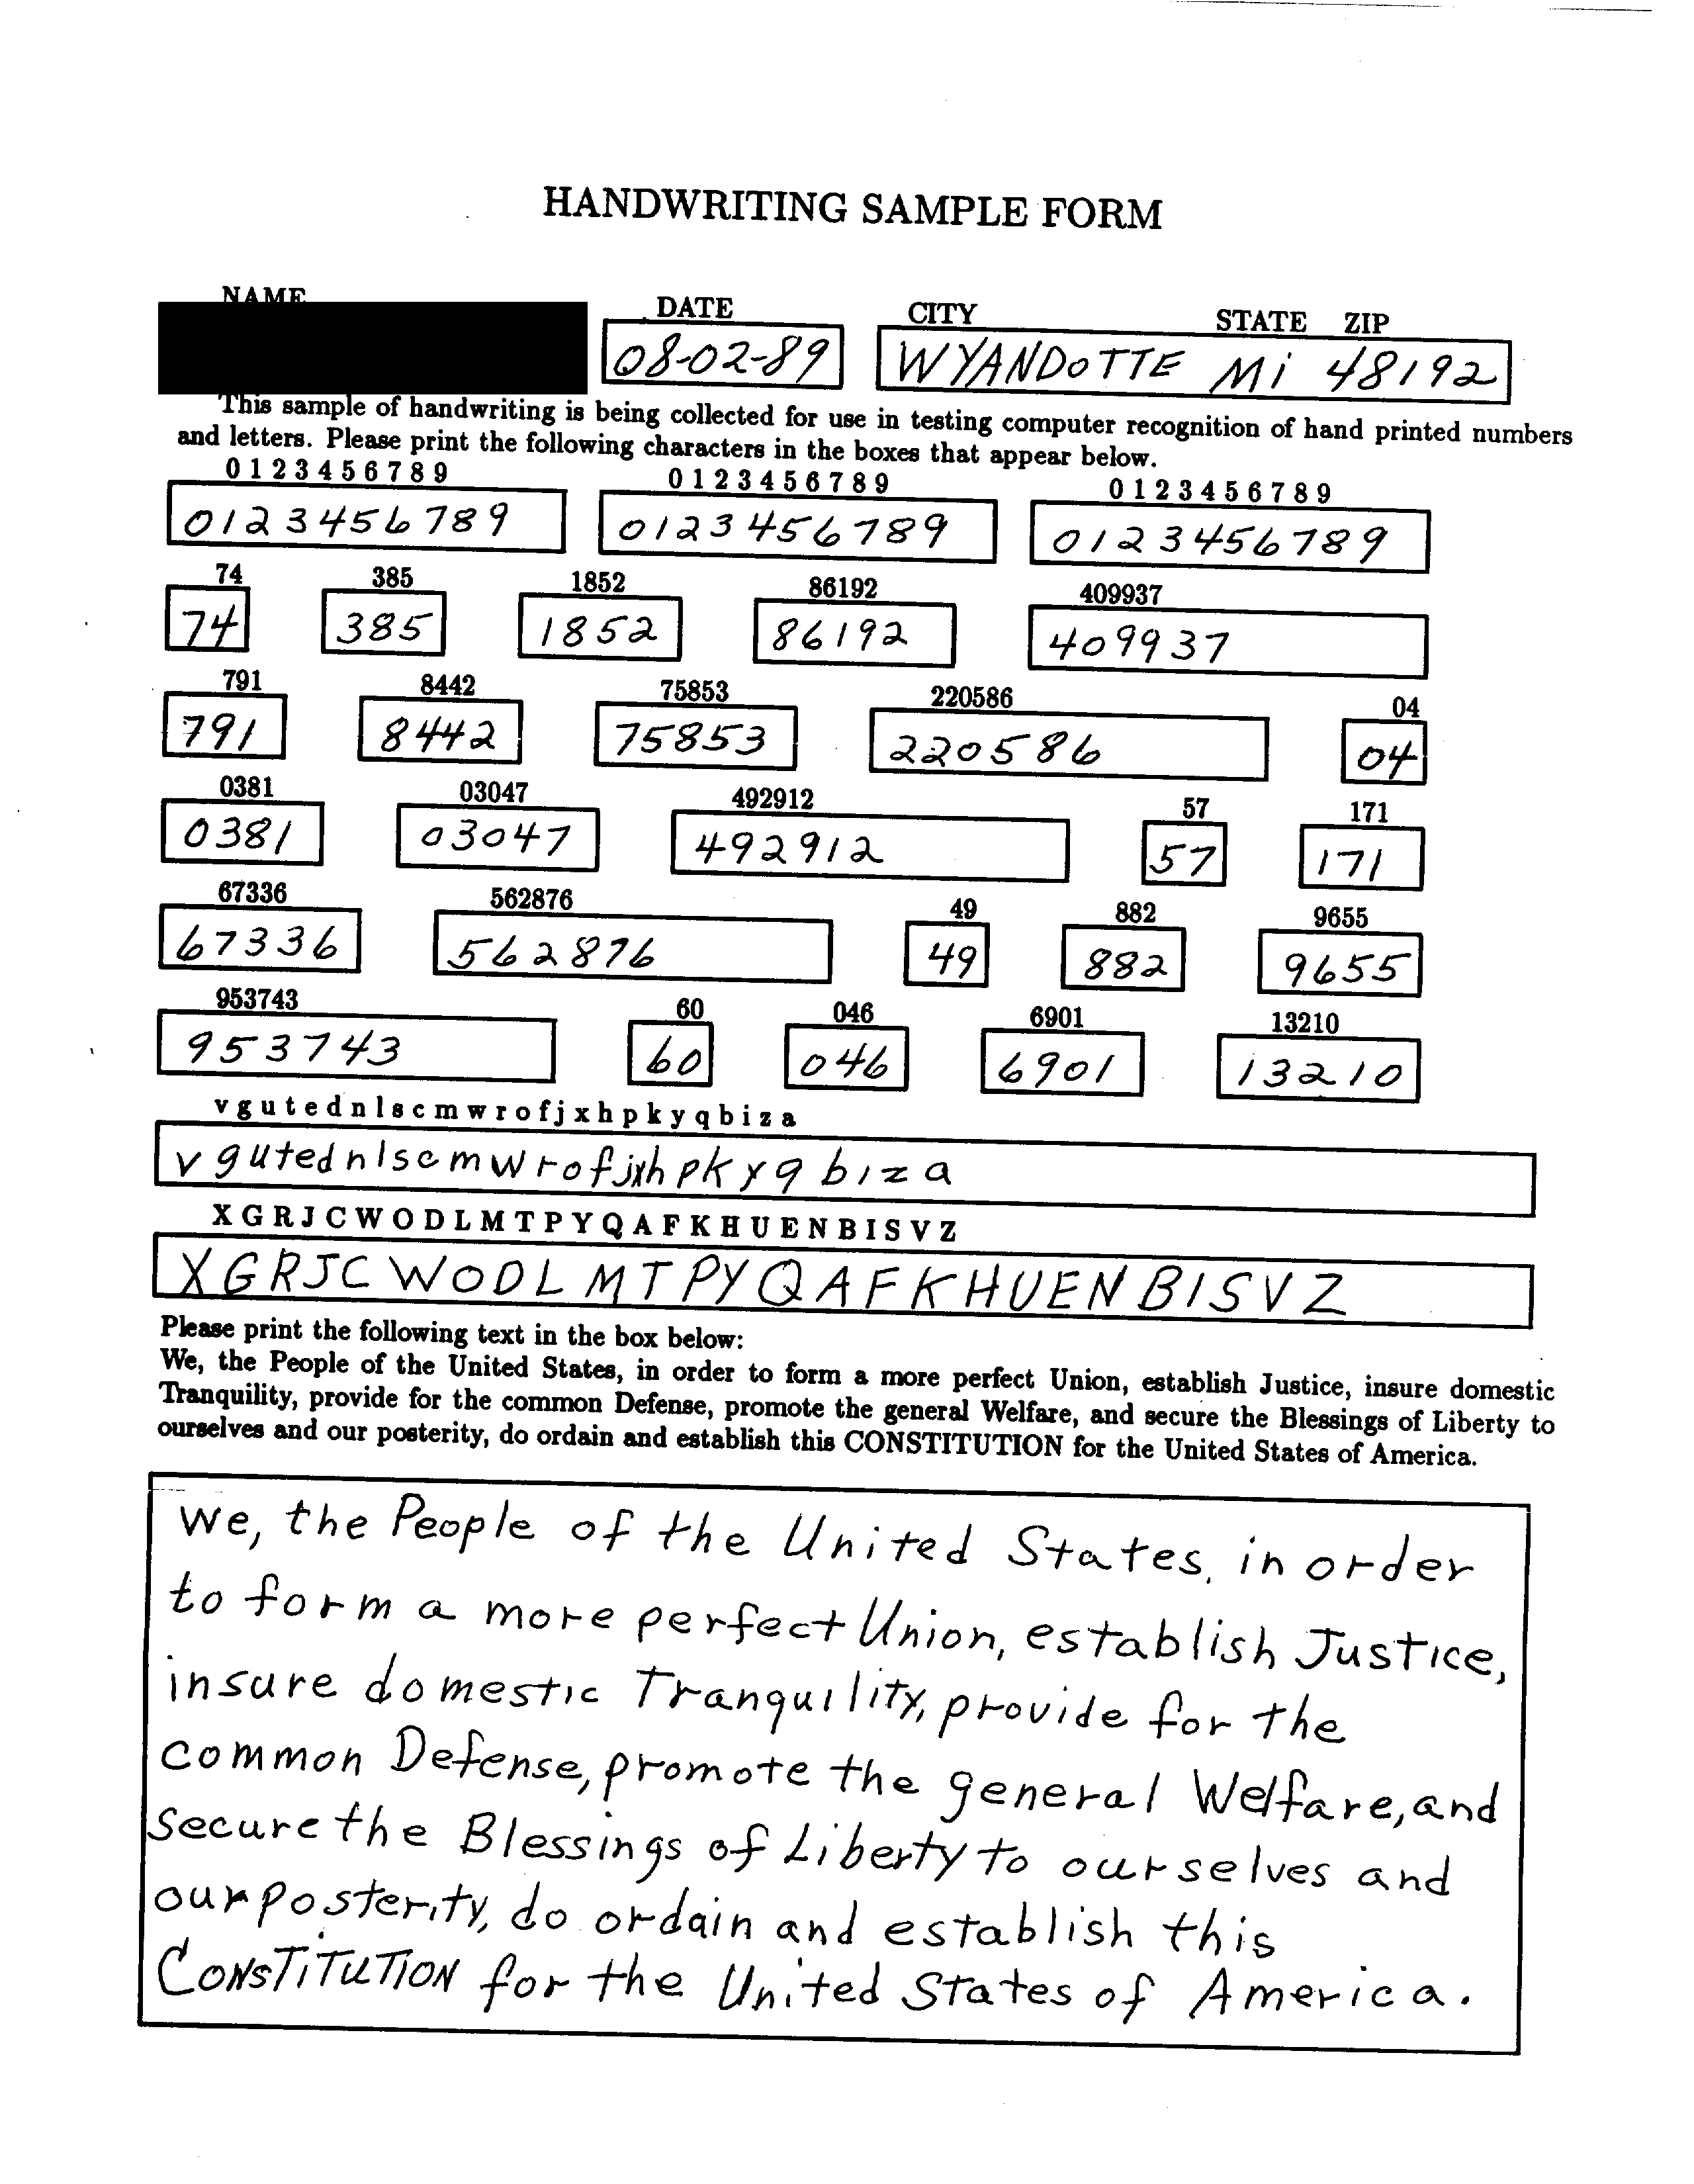 HANDWRITING SAMPLE FORM
NAME DATE CITY STATE ZIP
08-02-89 WYANDOTTE Mi 48192
This sample of handwriting is being collected for use in testing computer recognition of hand printed numbers
and letters. Please print the following characters in the boxes that appear below.
0 1 2 3 4 5 6 7 8 9 0 1 2 3 4 5 6 7 8 9 0 1 2 3 4 5 6 7 8 9
0123456789 0123456789 0123456789
74 385 1852 86192 409937
74 385 1852 86192 409937
791 8442 75853 220586 04
791 8442 75853 220586 04
0381 03047 492912 57 171
0381 03047 492912 57 171
67336 562876 49 882 9655
67336 562876 49 882 9655
953743 60 046 6901 13210
953743 60 046 6901 13210
v g u t e d n l s c m w r o f j x h p k y q b i z a
v g u t e d n l s c m w r o f j x h p k y q b i z a
X G R J C W O D L M T P Y Q A F K H U E N B I S V Z
X G R J C W O D L M T P Y Q A F K H U E N B I S V Z
Please print the following text in the box below:
We, the People of the United States, in order to form a more perfect Union, establish Justice, insure domestic
Tranquility, provide for the common Defense, promote the general Welfare, and secure the Blessings of Liberty to
ourselves and our posterity, do ordain and establish this CONSTITUTION for the United States of America.
We, the People of the United States, in order
to form a more perfect Union, establish Justice,
insure domestic Tranquility, provide for the
common Defense, promote the general Welfare, and
secure the Blessings of Liberty to ourselves and
our posterity, do ordain and establish this
CONSTITUTION for the United States of America.